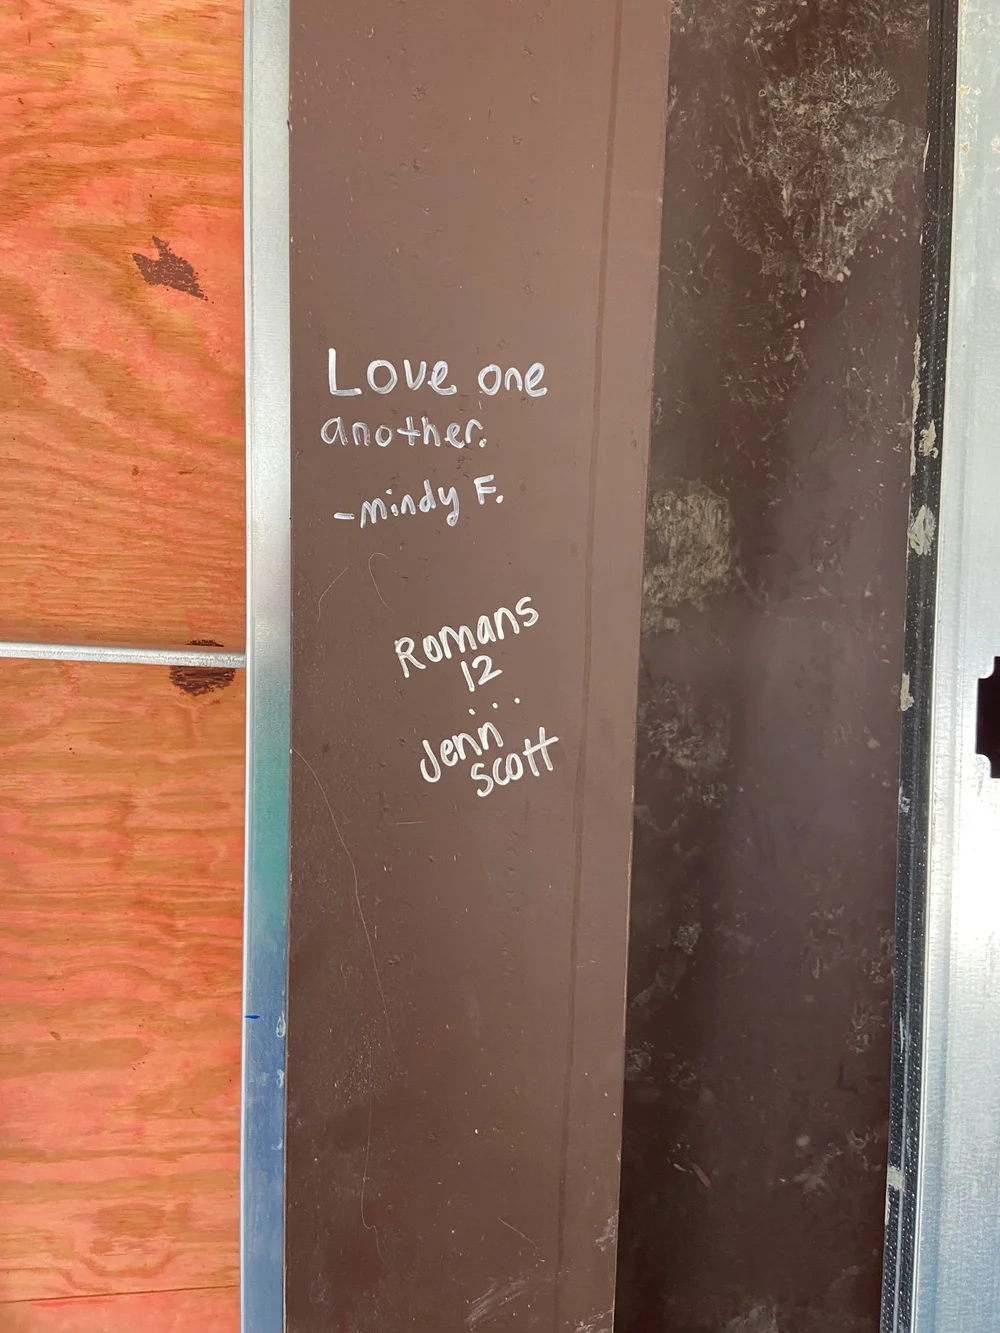 Love one
another.
-mindy F.
Romans
12
...
Jenn
Scott